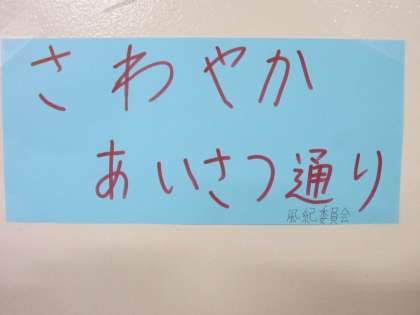 さわやか
あいさつ通り
風紀委員会